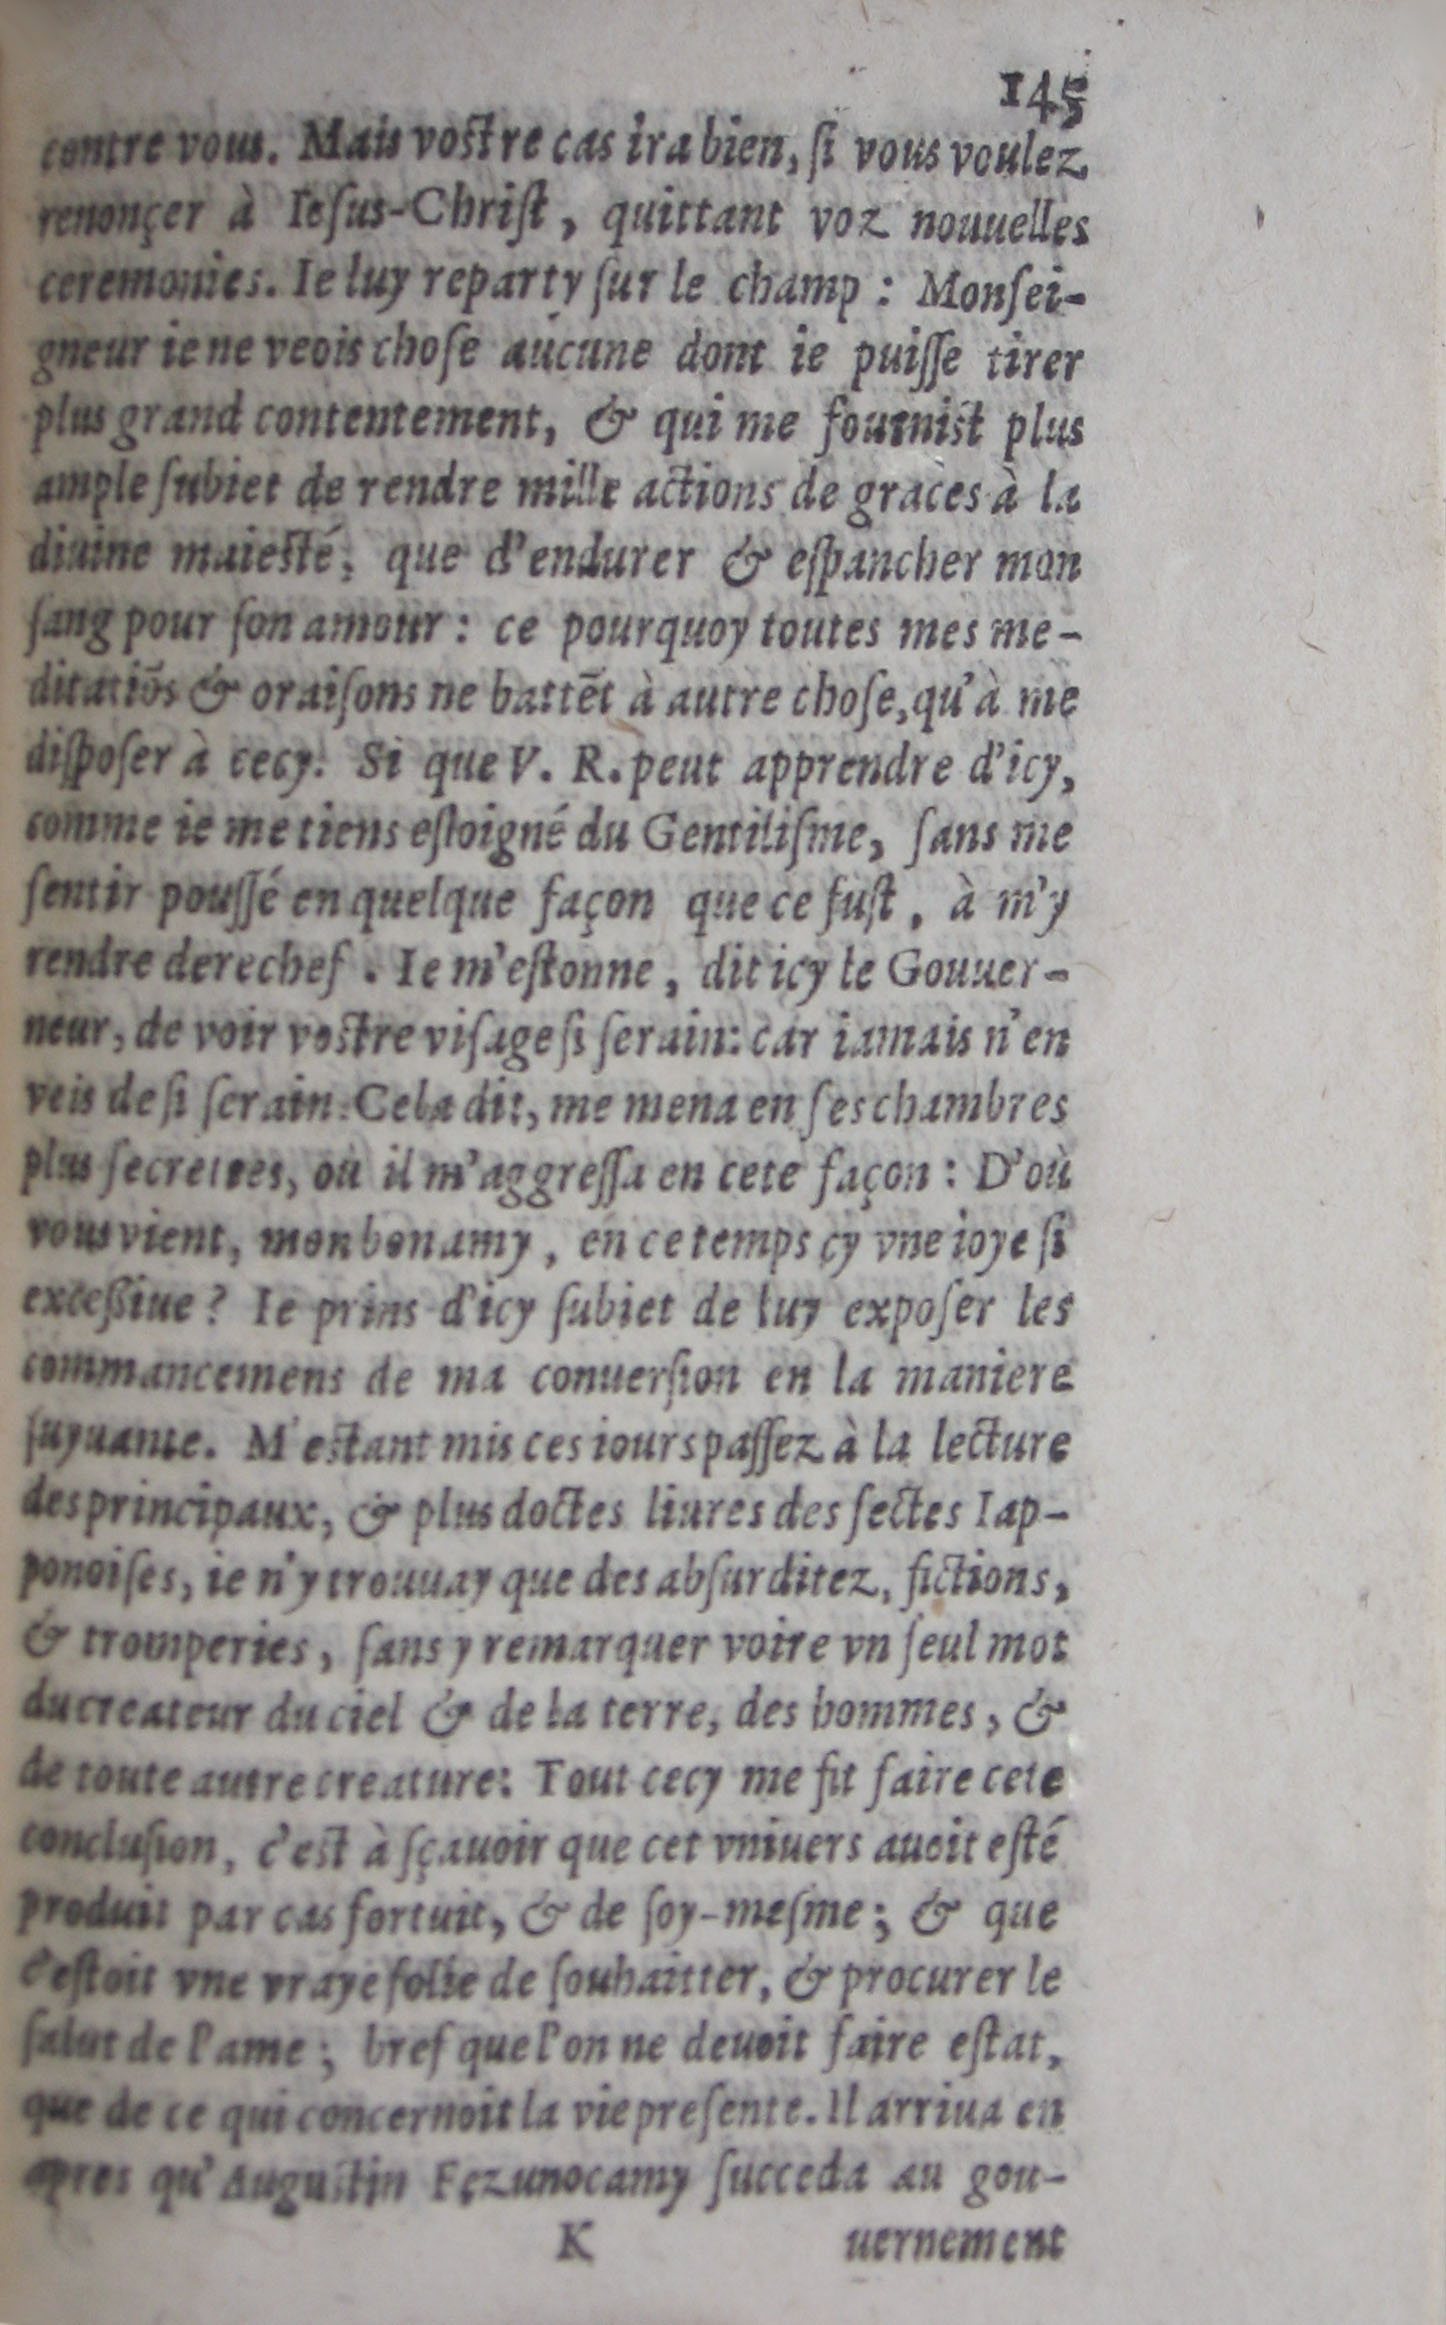 145
contre vous. Mais vostre cas ira bien, ſi vous voulez
renonçer à Ieſus-Chriſt, quittant voz nouuelles
ceremonies. Ie luy reparty ſur le champ : Monſei-
gneur ie ne veois choſe aucune dont ie puiſſe tirer
plus grand contentement, & qui me fournist plus
ample ſubiet de rendre mille actions de graces à la
diuine maiesté, que d'endurer & eſpancher mon
ſang pour ſon amour : ce pourquoy toutes mes me-
ditatiõs & oraiſons ne battẽt à autre choſe, qu'à me
diſpoſer à cecy. Si que V. R. peut apprendre d'icy,
comme ie me tiens eſloigné du Gentiliſme, ſans me
ſentir pouſſé en quelque façon que ce fuſt, à m'y
rendre derechef. Ie m'eſtonne, dit icy le Gouuer-
neur, de voir vostre viſage ſi ſerain: car iamais n'en
veis de ſi ſerain. Cela dit, me mena en ſes chambres
plus ſecrettes, où il m'aggreſſa en cete façon : D'où
vous vient, mon bon amy, en ce temps cy vne ioye ſi
exceßiue ? Ie prins d'icy ſubiet de luy expoſer les
commancemens de ma conuerſion en la maniere
ſuyuante. M'estant mis ces iours paſſez à la lecture
des principaux, & plus doctes liures des ſectes Iap-
ponoiſes, ie n'y trouuay que des abſurditez, fictions,
& tromperies, ſans y remarquer voire vn ſeul mot
du createur du ciel & de la terre, des hommes, &
de toute autre creature: Tout cecy me fit faire cete
concluſion, c'est à ſçauoir que cet vniuers auoit eſté
produit par cas fortuit, & de ſoy-meſme; & que
c'eſtoit vne vraye folie de ſouhaitter, & procurer le
ſalut de l'ame; bref que l'on ne deuoit faire eſtat,
que de ce qui concernoit la vie preſente. Il arriua en
apres qu'Augustin Fçzunocamy ſucceda au gou-
K uernement